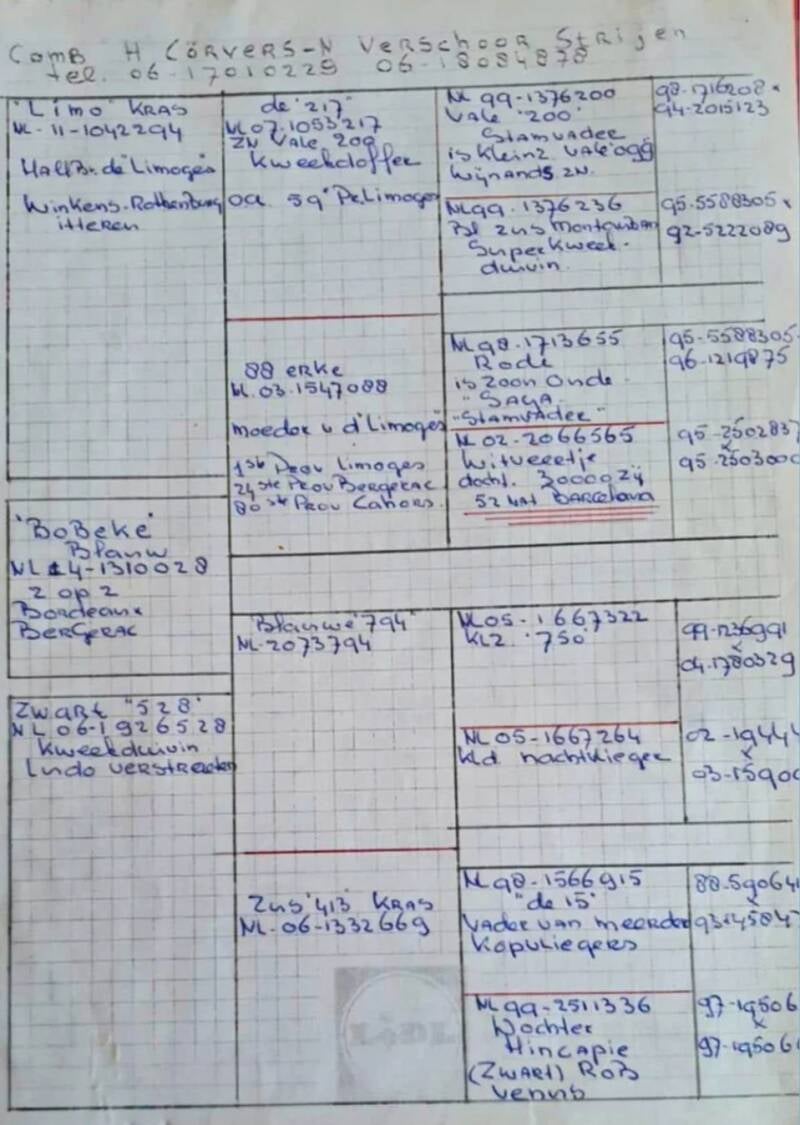 Comb H Corvers-N Verschoor Strijen
tel. 06-17010229 06-18084878
"Limo" KRAS
NL-11-1042294
Half Br. de "Limoges"
Winkens-Rothenburg
itteren
"BoBeke"
Blauw
NL 14-1310028
2 op 2
Bordeaux
BerGerac
Zwart "528"
NL 06-1926528
Kweekduivin
Ludo verstraeten
de "217"
NL 07.1053217
ZN Vale 200
Kweekdoffer
oa. 39e Pr. Limoges
88 erke
NL.03.1547088
moeder v d "Limoges"
1ste Prov Limoges
24ste Prov Bergerac
80ste Prov Cahors.
Blauwe "794"
NL-2073794
Zus "413" KRAS
NL-06-1332669
NL 99-1376200
Vale "200"
Stamvader
is Kleinz. Vale 099
Wijnands ZN.
NL99.1376236
Bl zus Montauban
Superkweek-
duivin.
NL98.1713655
Rode
is zoon Oude
"SAGA
"Stamvader"
NL 02-2066565
Witveertje
docht. 3000
52 Nat Barcelona
NL05-1667322
KLZ. "750"
NL 05-1667264
Kld. nachtvlieger
NL 98-1566915
"de 15"
Vader van meerder
Kopvliegers
NL 99-2511336
Dochter
Hincapie
(Zwart) Rob
Venus
98-1716208 x
94-2015123
95.5588305 x
92-5222089
95-5588305
96-1219875
95-2502837
x
95-2503000
99-1236991
x
04.1780329
02-19444
x
03-15900
88-590641
x
93.145847
97-19506
x
97-195061